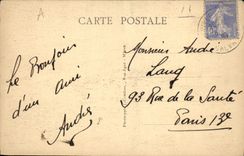 CARTE POSTALE
Le Bonjour
d'un ami
André
Monsieur André
Lang
93 Rue de la Santé
Paris 13e